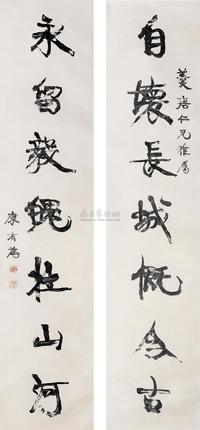 自壞長城慨今古
唐仁兄雅屬
永留毅魄壯山河
康有為